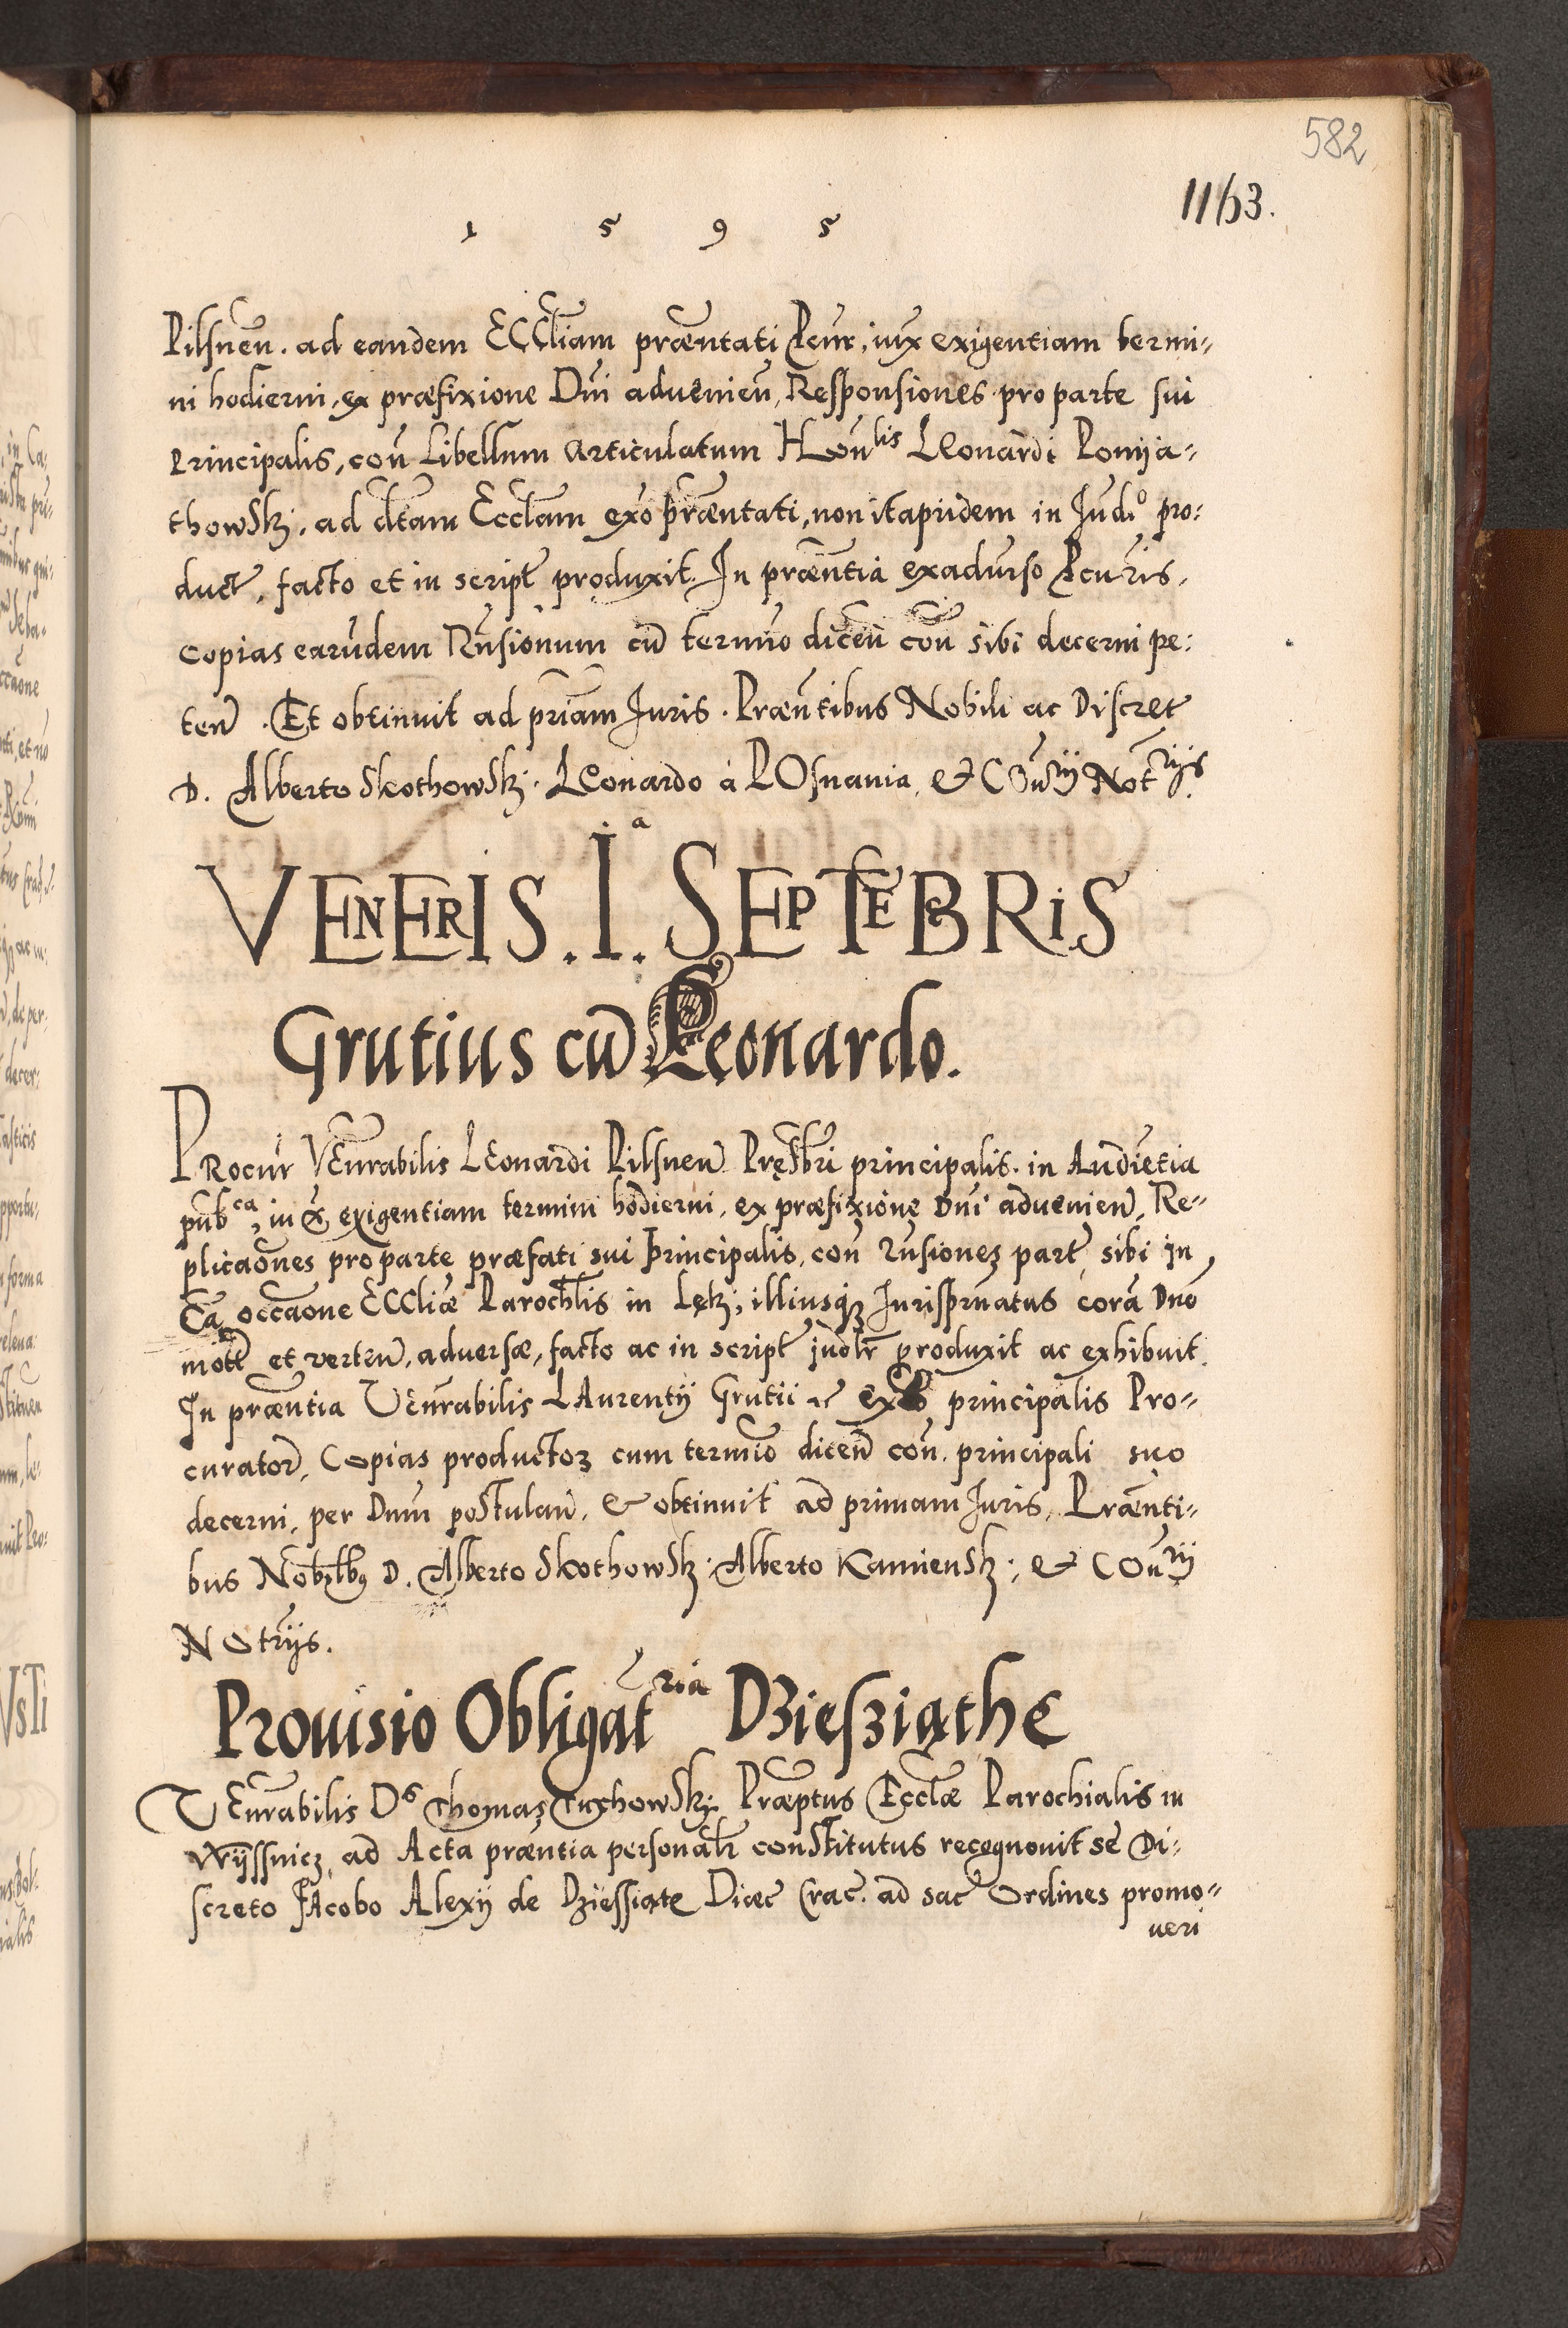 582
1163.
1 5 9 5
Pilsnen̄. ad eandem ECCliam præntati Pcur, iux exigentiam termi=
ni hodierni, ex præfixione Dni advenien, Responsiones pro parte sui
Principalis, con Libellum articulatum Hon̄lis LEonardi Pomija=
thowskj, ad dtam Ecclam exo præntati, non itapridem in Judio pro=
duct, facto et in script produxit. In præntia exadurso Pcuris,
copias earudem Rnsionum cū termino dicen con sibi decerni pe=
ten. Et obtinuit ad priam Juris. Præntibus Nobili ac Discret
D. Alberto Skothowskj. LEonardo à POsnania, et COnrij Notrijs.
VENERIS. Ia. SEPTEBRIS
Grutius cū Leonardo.
PRocur VEnrabilis LEonardi Pilsnen Prestbri principalis. in Audietia
pubca, iux exigentiam termini hodierni, ex præfixione Dni advenien, Re=
plicaones pro parte præfati sui Principalis, con Rnsiones part sibi in
Ca occaone ECCliæ Parochlis in Lękj, illiusq3 Jurisprnatus corā Dno
mott et verten, adversæ, facto ac in script judlr produxit ac exhibuit.
In præntia VEnrabilis LAurentij Grutii et exo principalis Pro=
curator, Copias productor cum termio dicen con principali suo
decerni, per Dnm postulan, et obtinuit ad primam Juris, Prænti=
bus Nobilib9 D. Alberto Skothowskj. Alberto Kamienskj, et COnrij
NOtrijs.
Prouisio Obligatria Dzieszięthe
VEnrabilis Ds Thomas Tuchowskj Præptus Ecclæ Parochialis in
Wijssnicz, ad Acta præntia personalr constitutus recognouit se Di=
screto JAcobo Alexij de Dziessiąte Dioec Crac. ad sac Ordines promo=
ueri